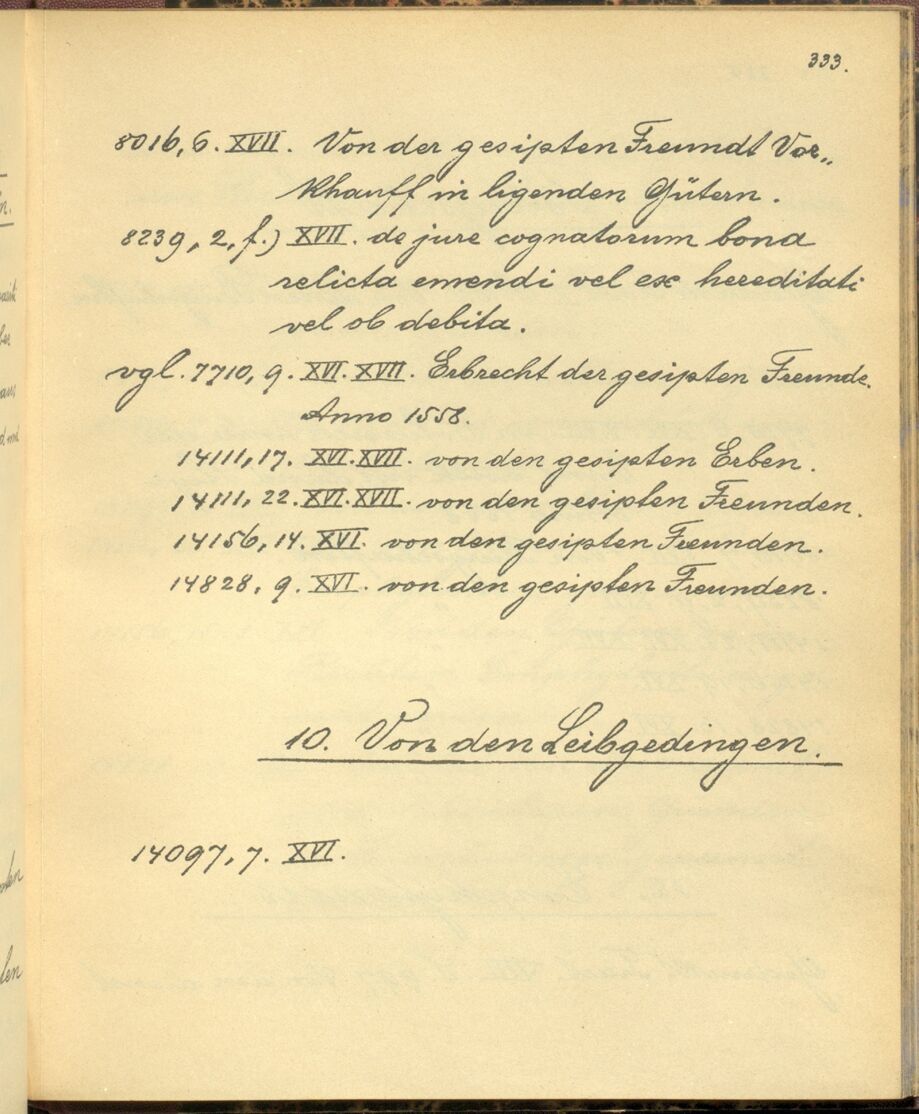 333.
8016, 6. XVII. Von der gesipten Freundt Vor„
Khauff in ligenden Gütern.
8239, 2, f.) XVII. de jure cognatorum bona
relicta emendi vel ex hereditati
vel ob debita.
vgl. 7710, 9. XVI. XVII. Erbrecht der gesipten Freunde.
Anno 1558.
14111, 17. XVI. XVII. von den gesipten Erben.
14111, 22. XVI. XVII. von den gesipten Freunden.
14156, 14. XVI. von den gesipten Freunden.
14828, 9. XVI. von den gesipten Freunden.
10. Von den Leibgedingen.
14097, 7. XVI.